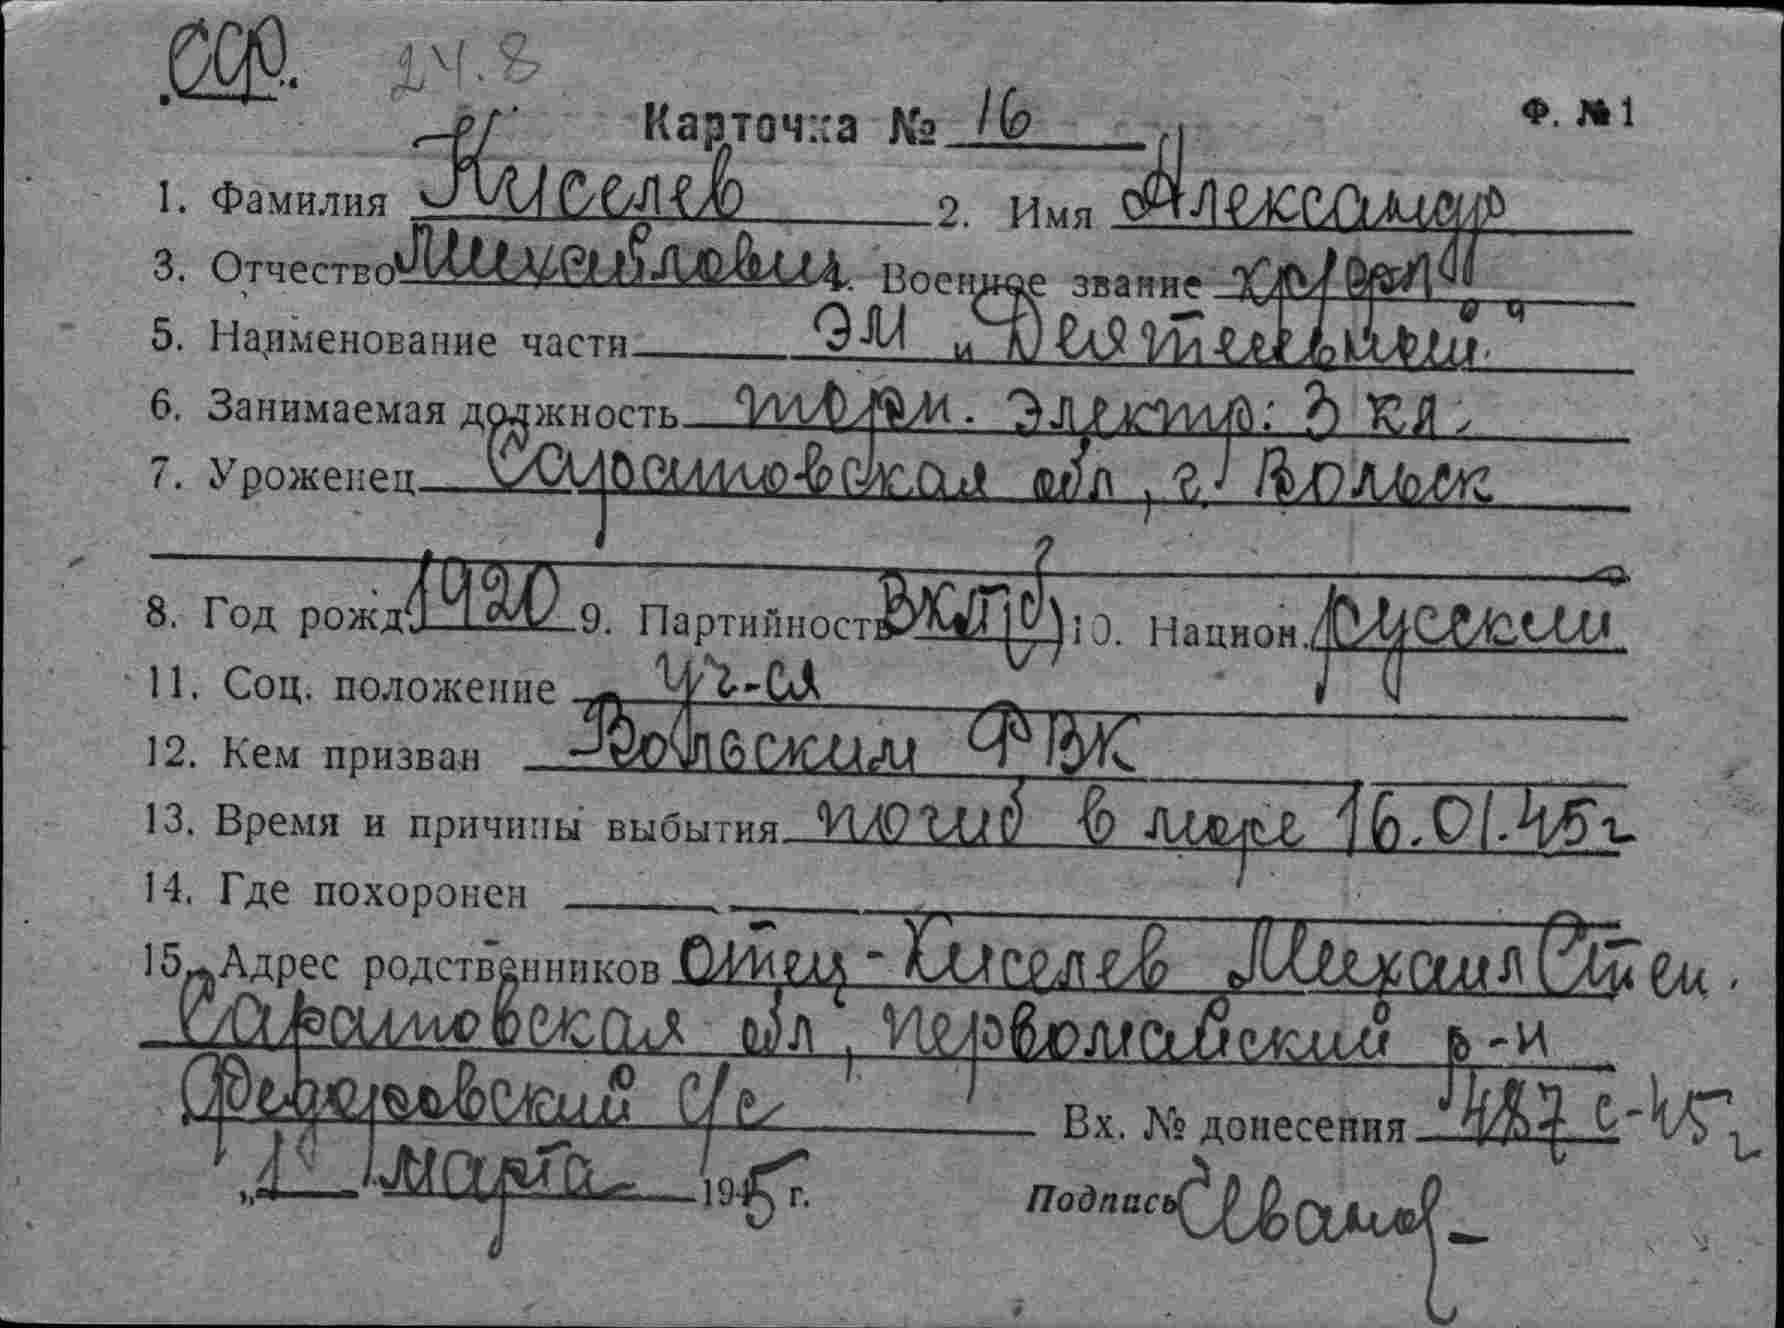 ССФ.
24.8
Карточка № 16
Ф. № 1
1. Фамилия Киселев 2. Имя Александр
3. Отчество Михайлович 4. Военное звание
5. Наименование части ЭМ „Деятельный"
6. Занимаемая должность торп. электр: 3 кл.
7. Уроженец Саратовская обл, г. Вольск
8. Год рожд. 1920 9. Партийность ВКП(б) 10. Национ. русский
11. Соц. положение уч-ся
12. Кем призван Вольским РВК
13. Время и причины выбытия погиб в море 16.01.45г
14. Где похоронен
15. Адрес родственников отец - Киселев Михаил Степ.
Саратовская обл, Первомайский р-н
Федоровский с/с Вх. № донесения 487 с-45г
„1" марта 1945 г. Подпись Иванов